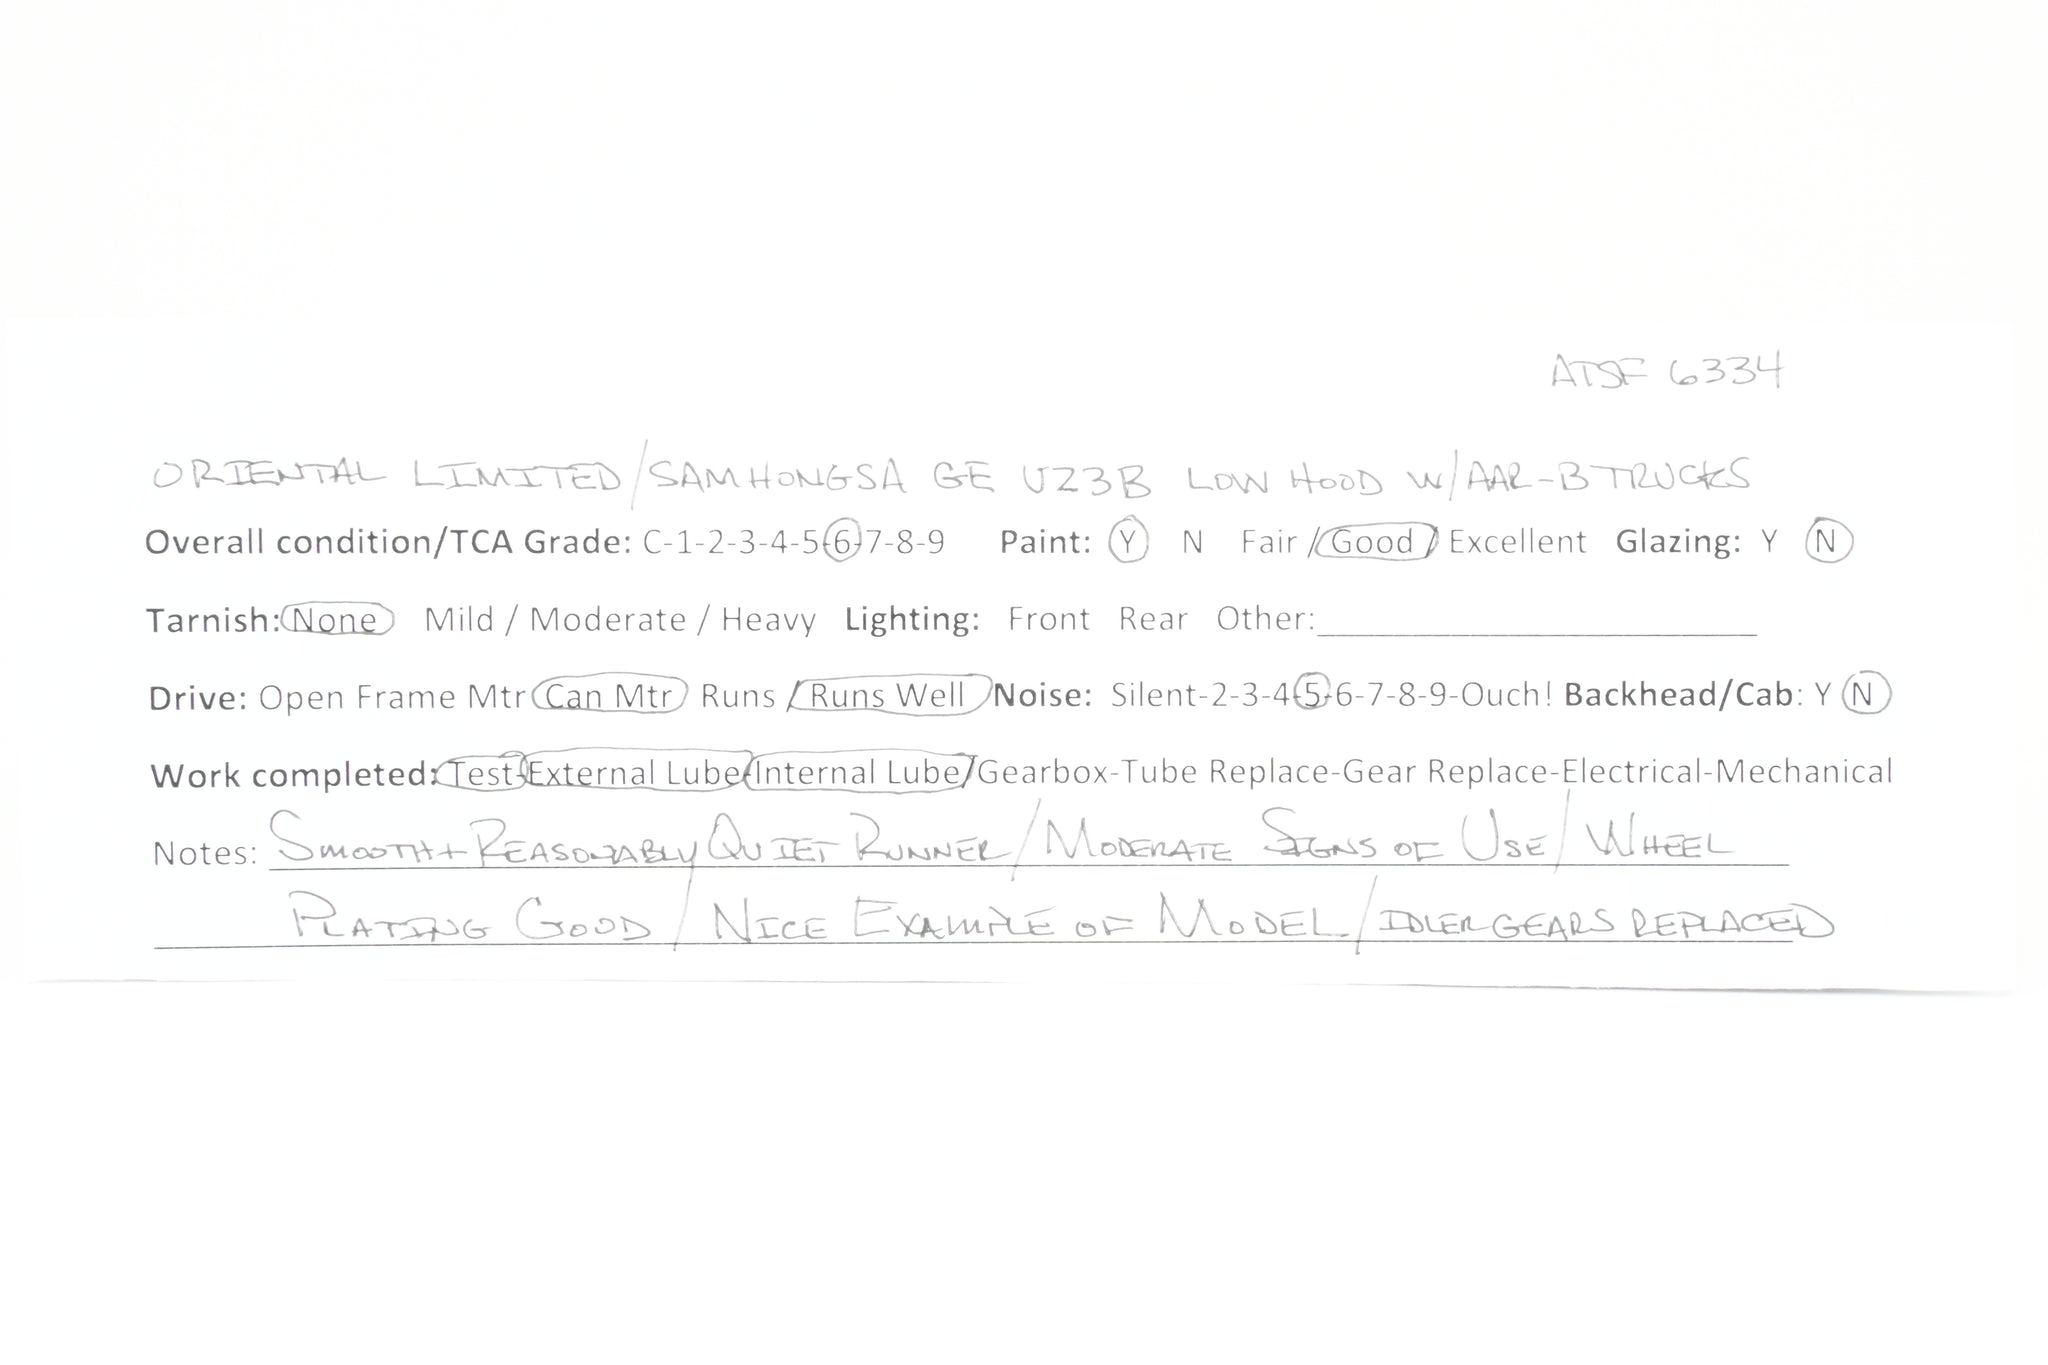 ATSF 6334
ORIENTAL LIMITED/SAMHONGSA GE U23B LOW HOOD W/AAR-B TRUCKS
Overall condition/TCA Grade: C-1-2-3-4-5-6-7-8-9 Paint: Y N Fair / Good / Excellent Glazing: Y N
Tarnish: None Mild / Moderate / Heavy Lighting: Front Rear Other:
Drive: Open Frame Mtr Can Mtr Runs / Runs Well Noise: Silent-2-3-4-5-6-7-8-9-Ouch! Backhead/Cab: Y N
Work completed: Test-External Lube-Internal Lube/Gearbox-Tube Replace-Gear Replace-Electrical-Mechanical
Notes: SMOOTH + REASONABLY QUIET RUNNER / MODERATE SIGNS OF USE / WHEEL
PLATING GOOD / NICE EXAMPLE OF MODEL / IDLER GEARS REPLACED